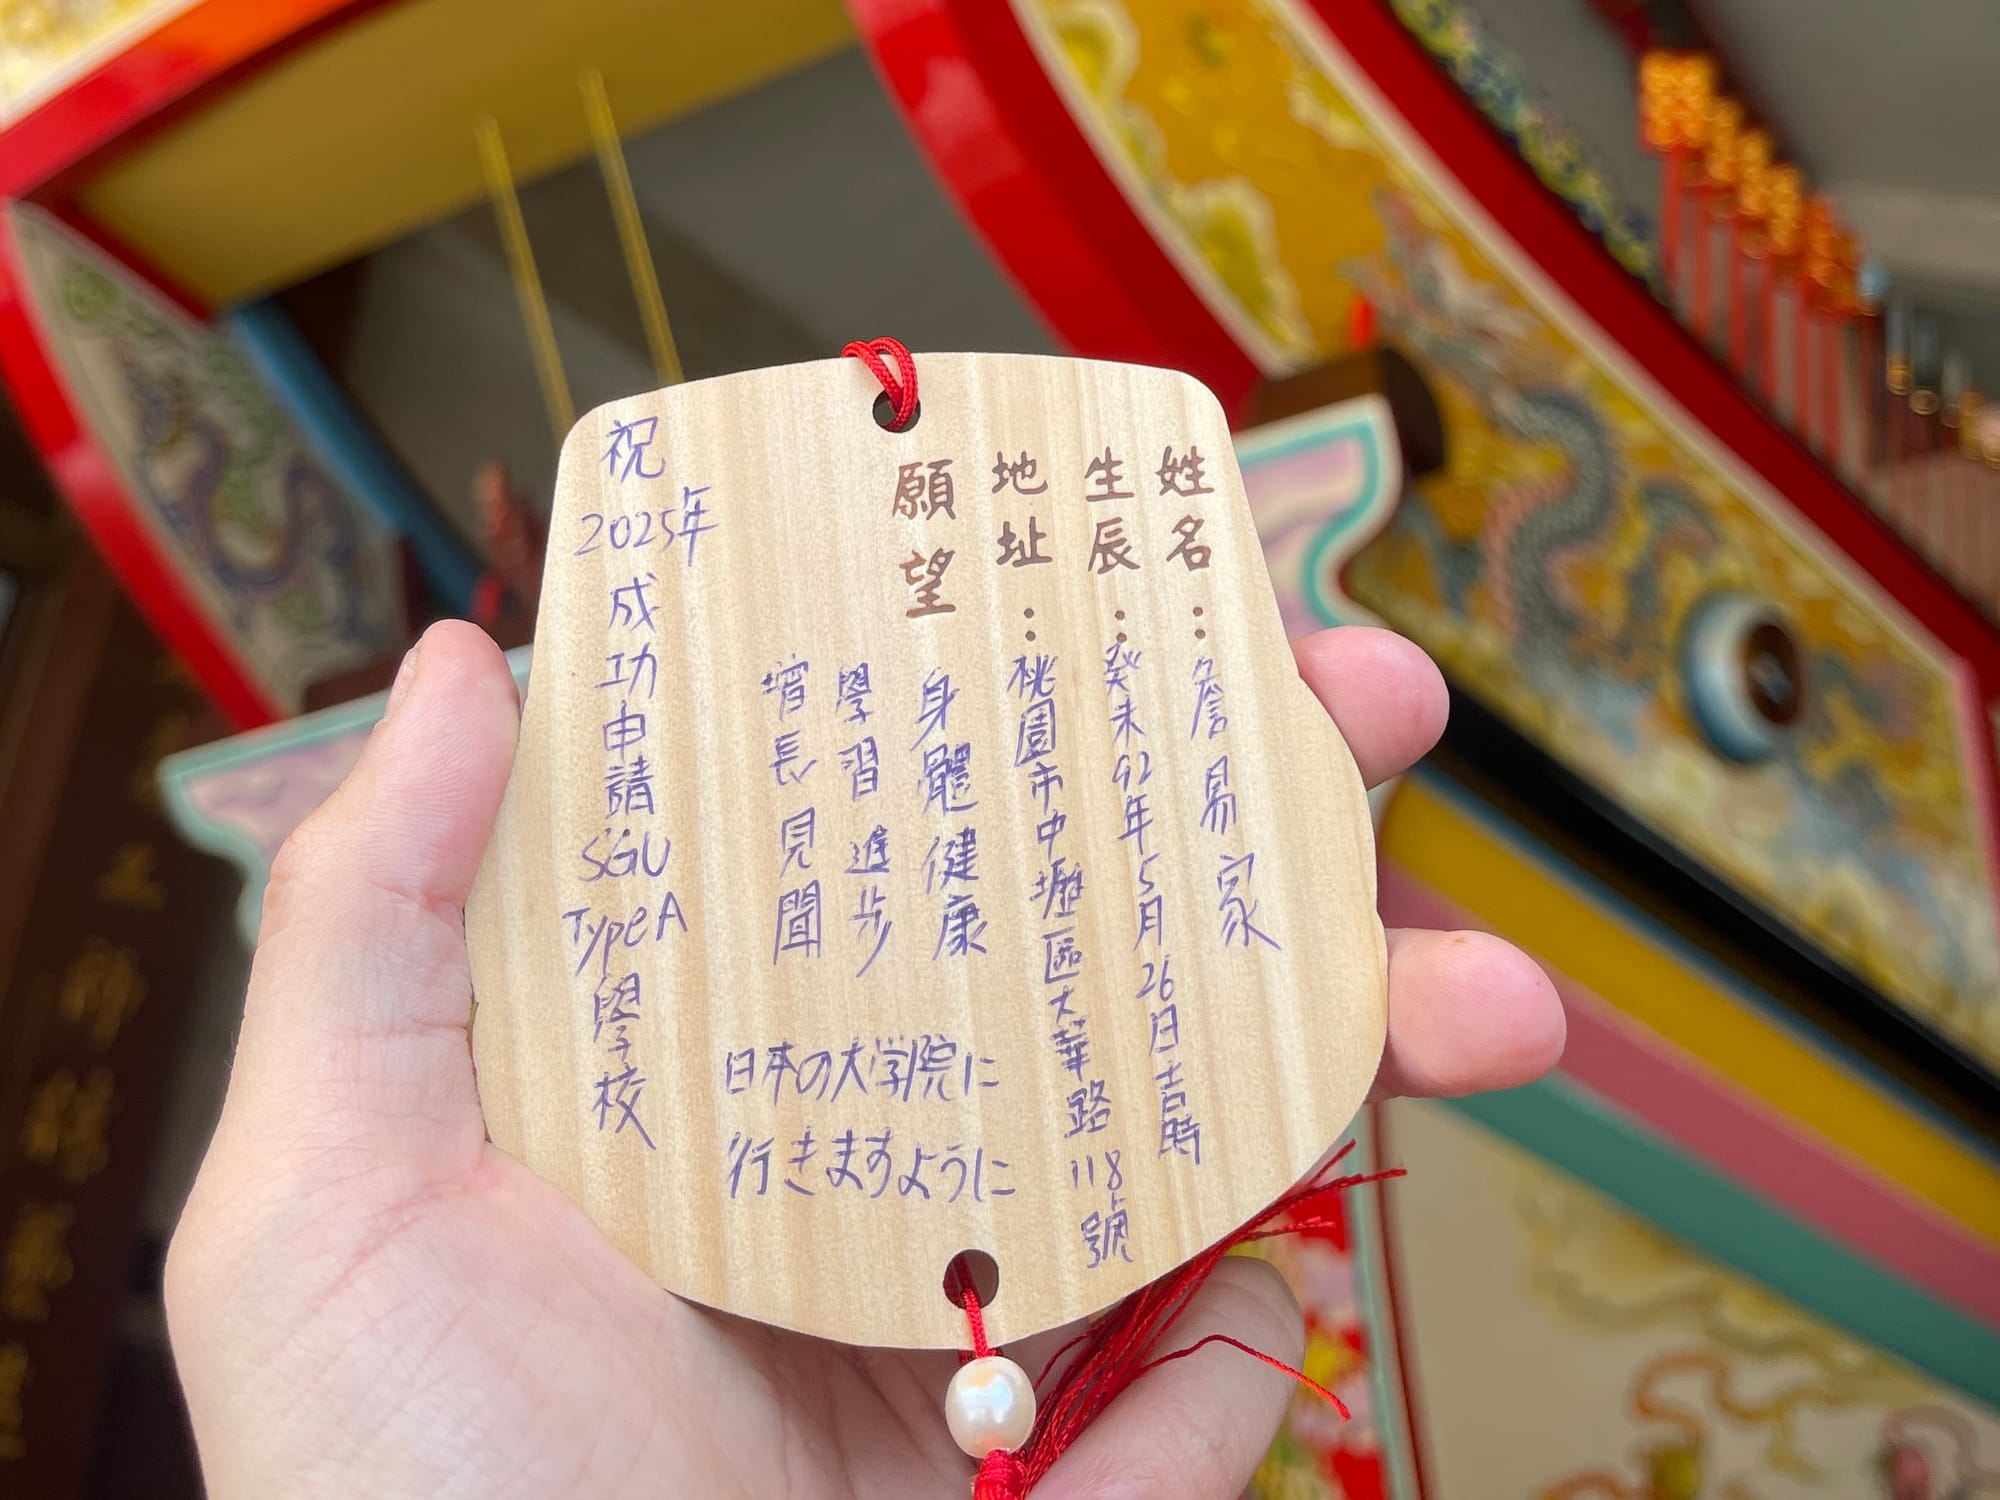 姓名：詹易家
生辰：癸未92年5月26日吉時
地址：桃園市中壢區大華路118號
願望
身體健康
學習進步
增長見聞
日本の大学院に
行きますように
祝
2025年
成功申請
SGU
TypeA
學校